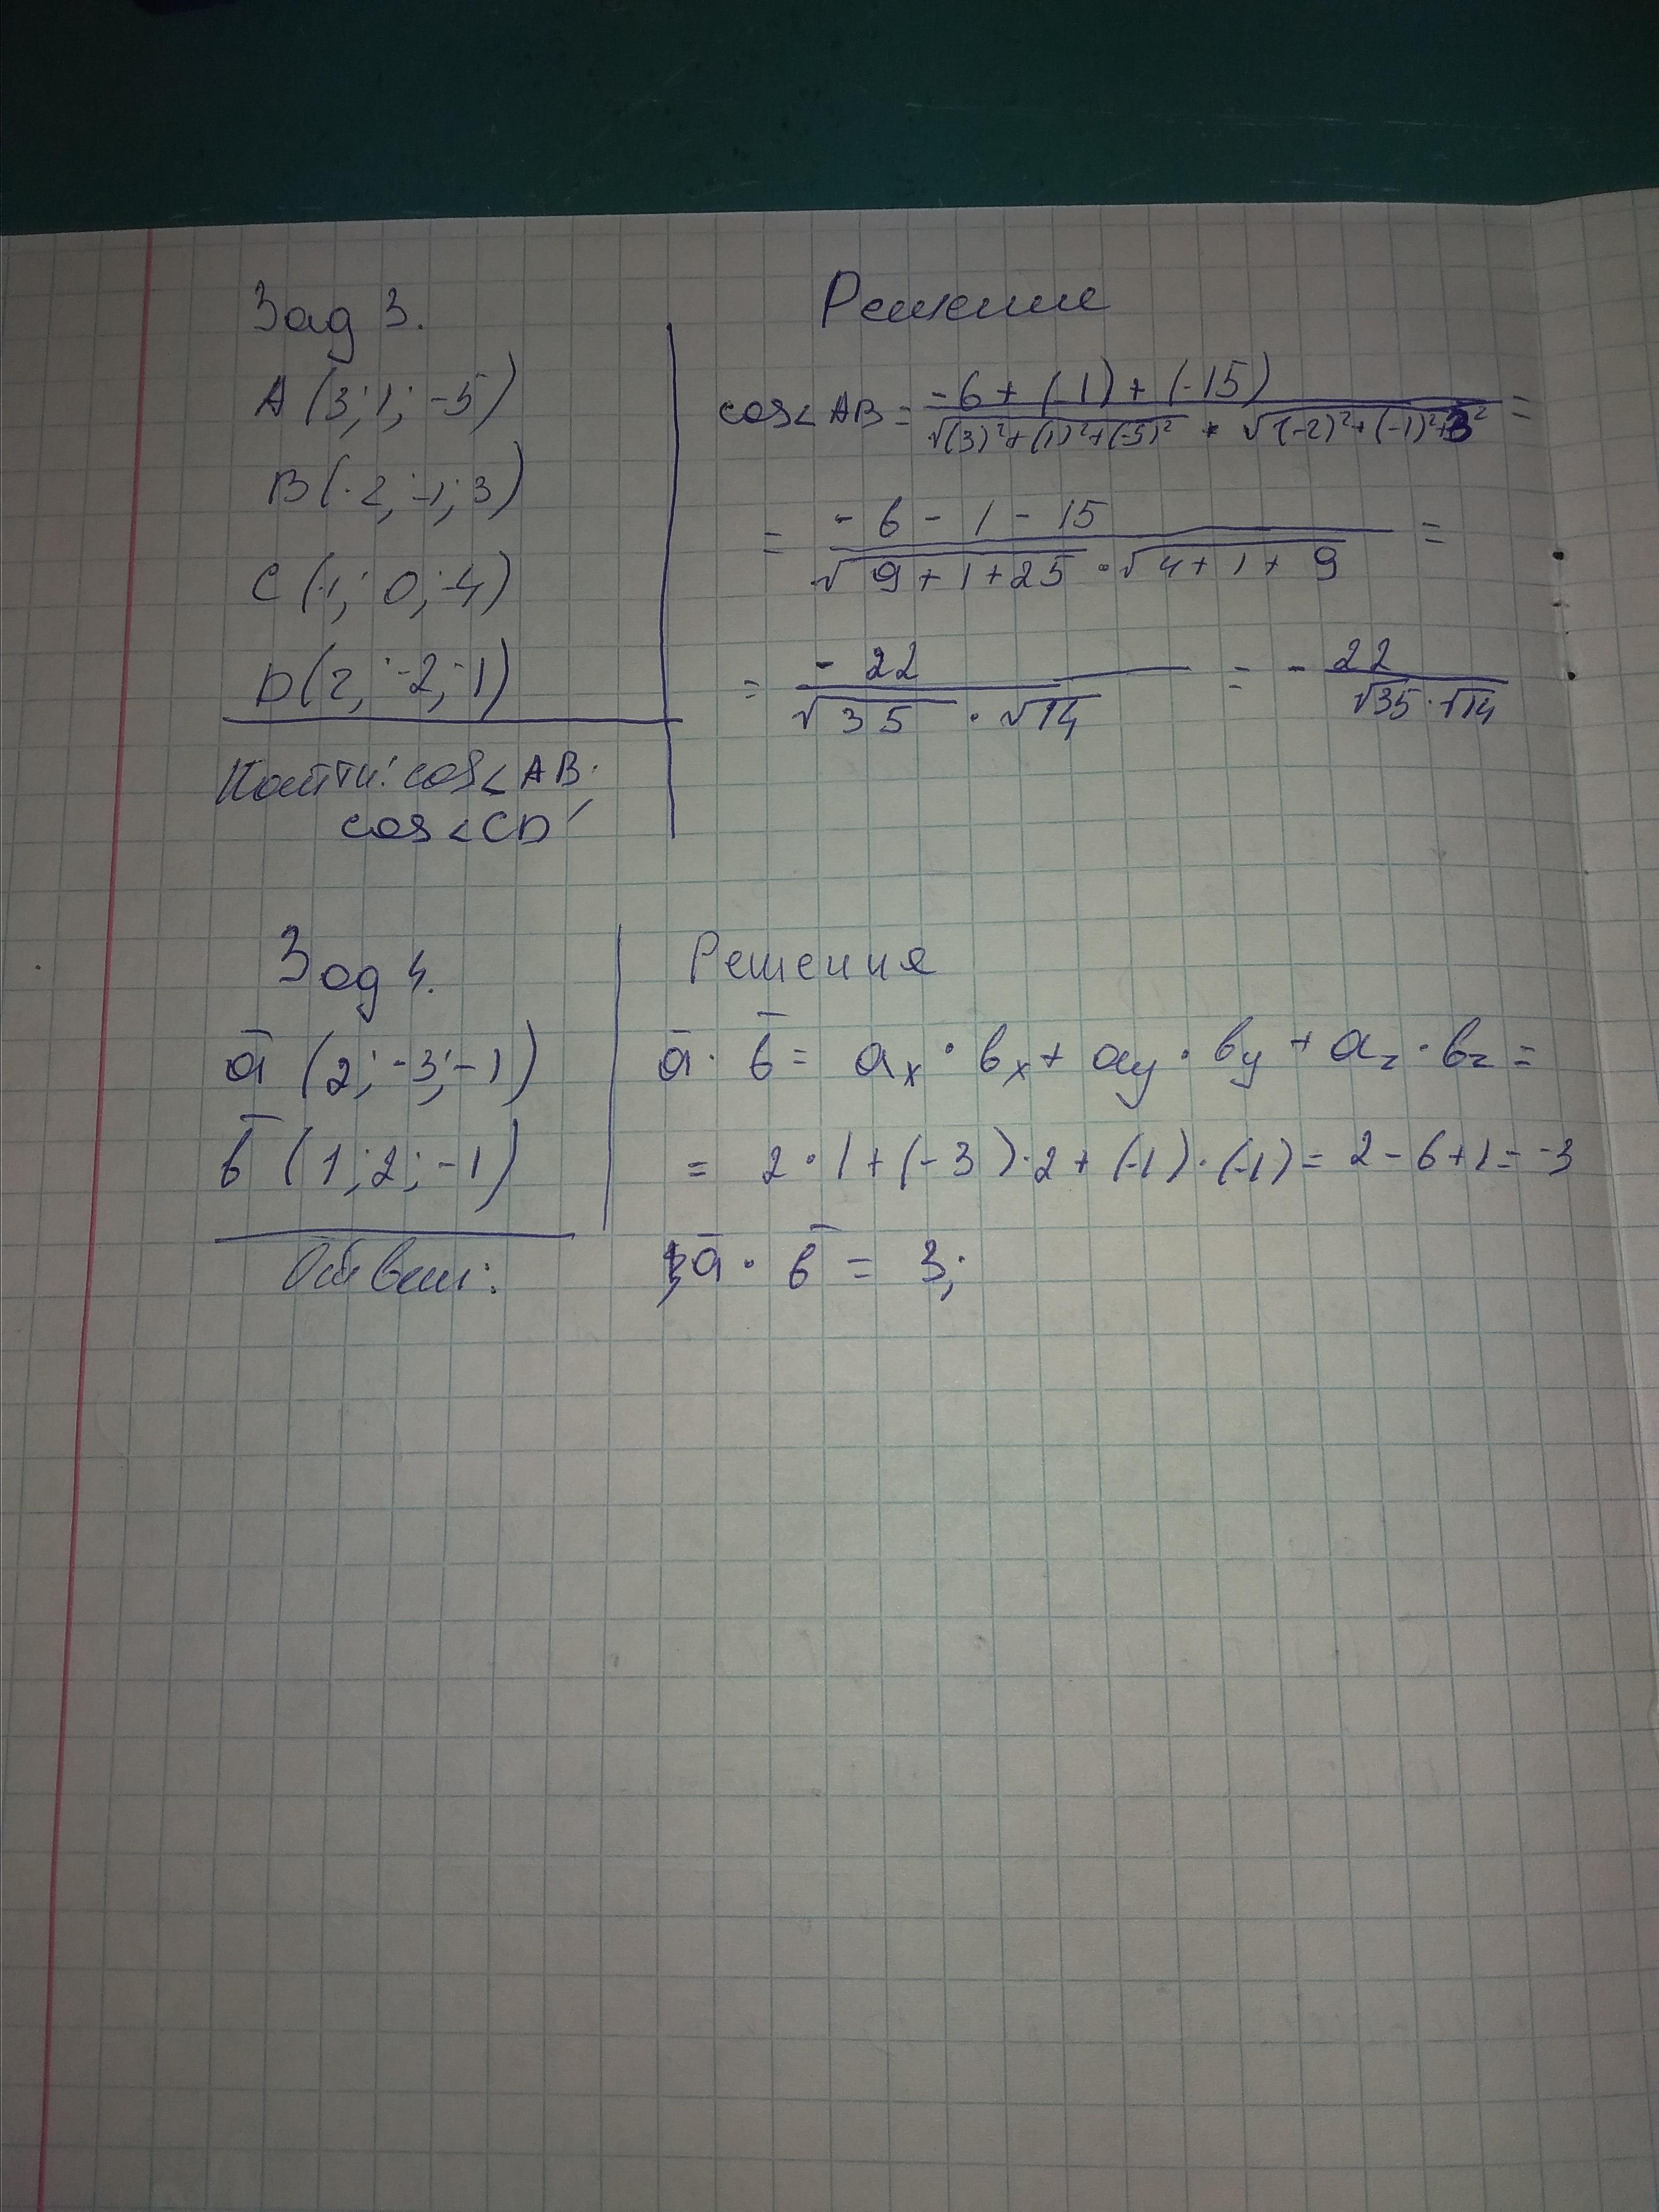 Зад 3.
A (3; 1; -5)
B (-2; -1; 3)
C (-1; 0; -4)
D (2; -2; -1)
Найти: cos< AB;
cos < CD
Решение
cos< AB = (-6 + (-1) + (-15)) / (√(3)²+(1)²+(-5)² · √(-2)²+(-1)²+3²) =
= (-6 - 1 - 15) / (√9+1+25 · √4+1+9) =
= (-22) / (√35 · √14) = - 22 / (√35 · √14)
Зад 4.
a̅ (2; -3; -1)
b̅ (1; 2; -1)
Решения
a̅ · b̅ = aₓ · bₓ + ay · by + az · bz =
= 2 · 1 + (-3) · 2 + (-1) · (-1) = 2 - 6 + 1 = -3
Ответ: a̅ · b̅ = 3;